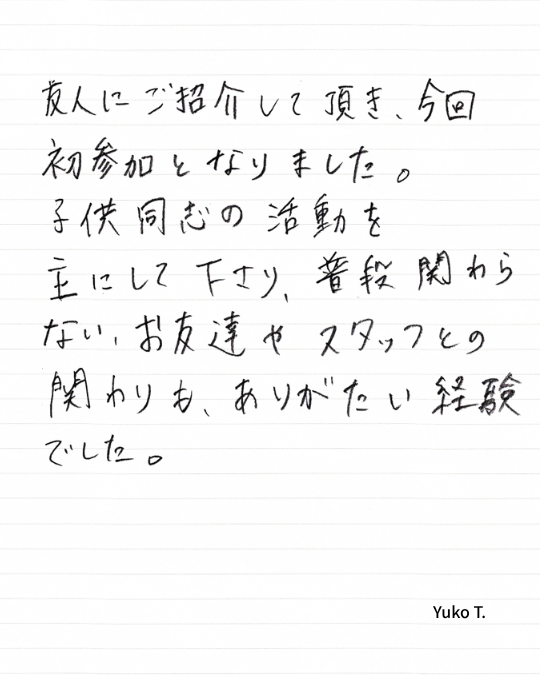 友人にご紹介して頂き、今回
初参加となりました。
子供同志の活動を
主にして下さり、普段関わら
ない、お友達やスタッフとの
関わりも、ありがたい経験
でした。
Yuko T.